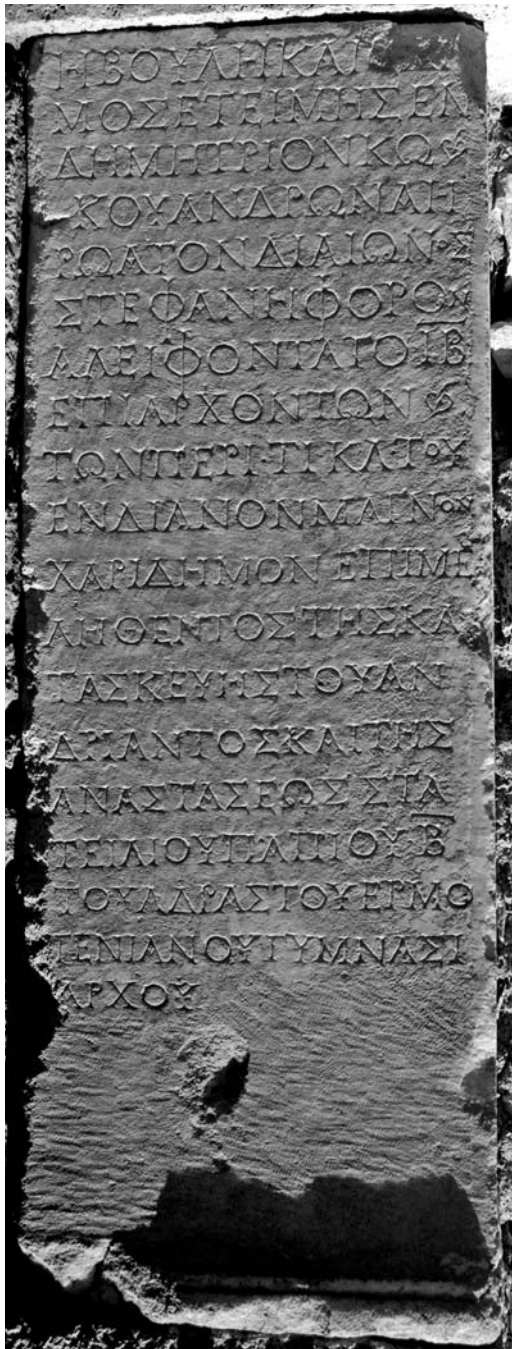 ΗΒΟΥΛΗΚΑΙ
ΜΟΣΕΤΕΙΜΗΣΕΝ
ΔΗΜΗΤΡΙΟΝΚΩ
ΚΟΥΑΝΔΡΩΝΑΗ
ΡΩΑΤΟΝΔΙΑΙΩΝΟΣ
ΣΤΕΦΑΝΗΦΟΡΟΝ
ΑΛΕΙΦΟΝΤΑΤΟΙΒ
ΕΠΙΑΡΧΟΝΤΩΝ
ΤΩΝΠΕΡΙΤΙΚΛΤΟΥ
ΕΝΔΙΑΝΟΝΜΑΙΝΟΝ
ΧΑΡΙΔΗΜΟΝΕΠΙΜΕ
ΛΗΘΕΝΤΟΣΤΗΣΚΑ
ΤΑΣΚΕΥΗΣΤΟΥΑΝ
ΔΡΙΑΝΤΟΣΚΑΙΤΗΣ
ΑΝΑΣΤΑΣΕΩΣΣΤΑ
ΤΕΙΛΙΟΥΠΑΠΙΟΥΒ
ΤΟΥΑΔΡΑΣΤΟΥΕΡΜΟ
ΓΕΝΙΑΝΟΥΓΥΜΝΑΣΙ
ΑΡΧΟΥ